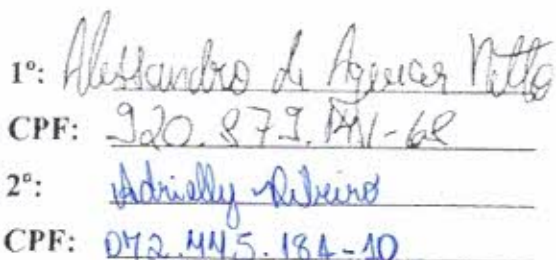 1º: Alessandro de Aguiar Netto
CPF: 920.879.141-68
2º: Adrielly Ribeiro
CPF: 072.445.181-10